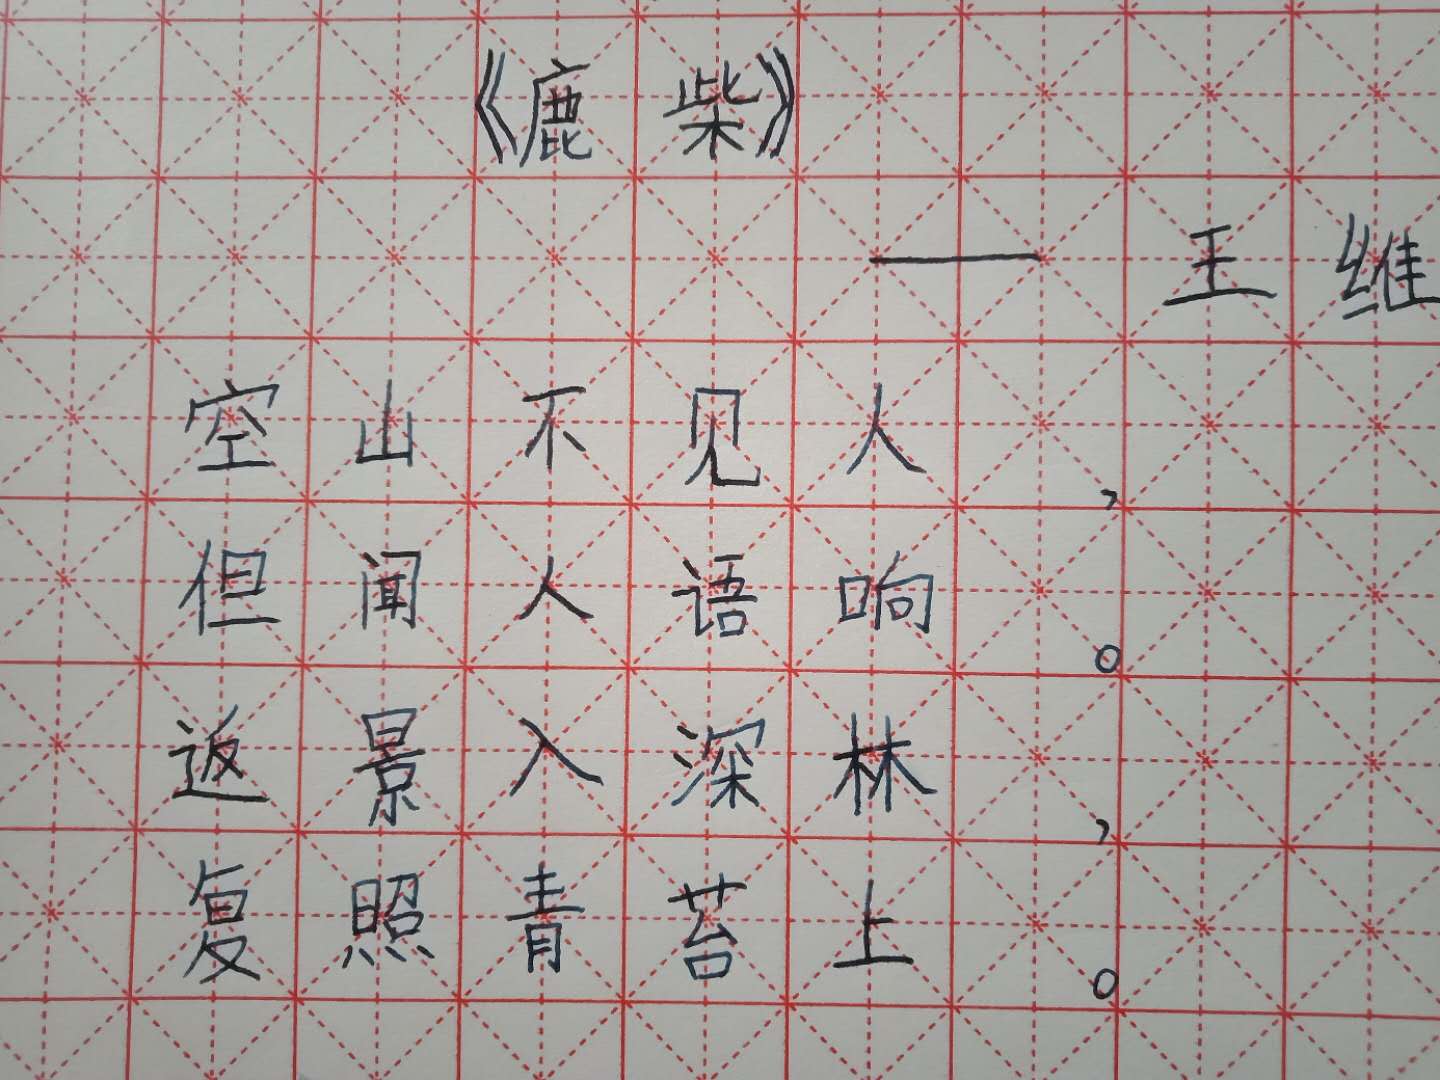 《鹿柴》
——王维
空山不见人，
但闻人语响。
返景入深林，
复照青苔上。